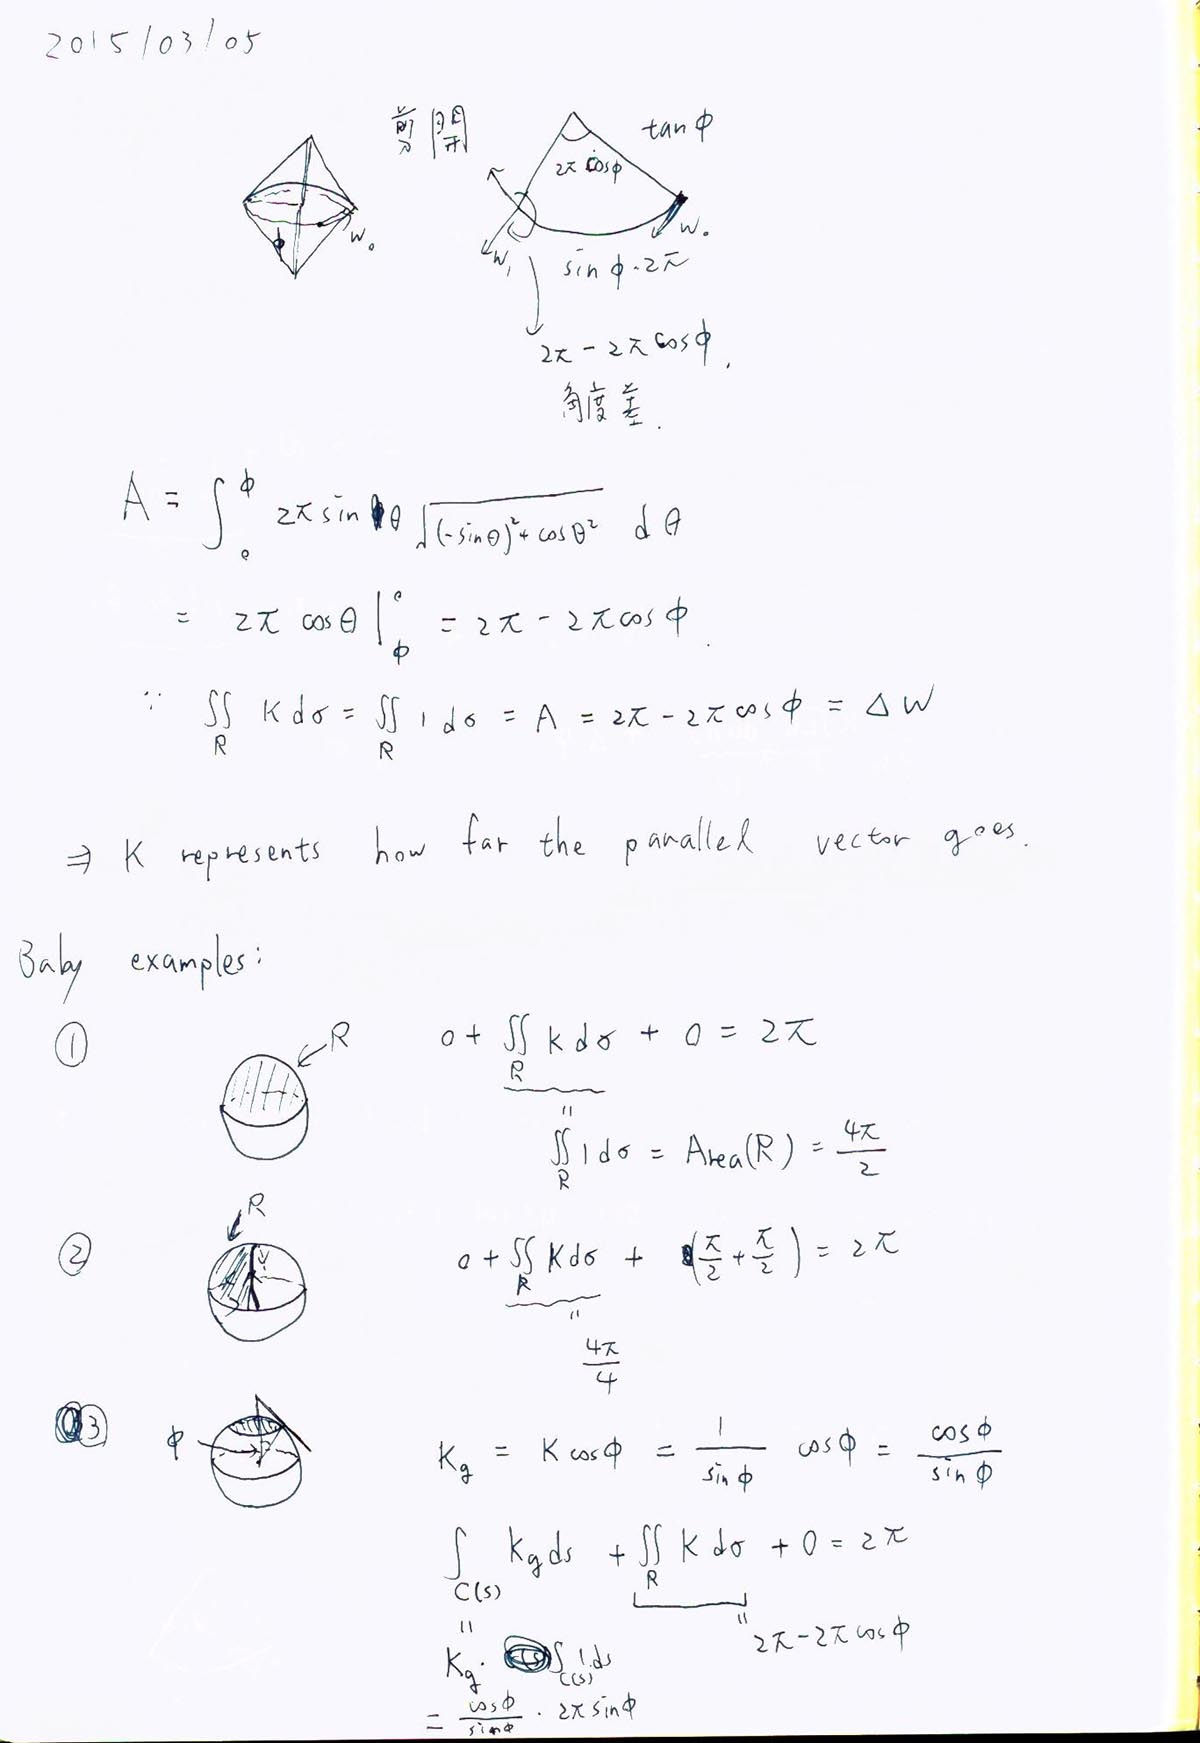 2015/03/05
剪開
tanφ
2π cosφ
φ
W₀
W₁
W₀
sinφ·2π
2π - 2π cosφ.
角度差.
A = ∫₀^φ 2π sinθ √((-sinθ)² + cosθ²) dθ
= 2π cosθ |_φ^0 = 2π - 2π cosφ.
∵ ∬_R K dσ = ∬_R 1 dσ = A = 2π - 2π cosφ = ΔW
⇒ K represents how far the parallel vector goes.
Baby examples:
① R 0 + ∬_R K dσ + 0 = 2π
"
∬_R 1 dσ = Area(R) = 4π/2
② R 0 + ∬_R K dσ + (π/2 + π/2) = 2π
"
4π/4
③ φ Kg = K cosφ = 1/sinφ cosφ = cosφ/sinφ
∫_C(s) kg ds + ∬_R K dσ + 0 = 2π
" "
2π - 2π cosφ
Kg · ∫_C(s) 1·ds
= cosφ/sinφ · 2π sinφ